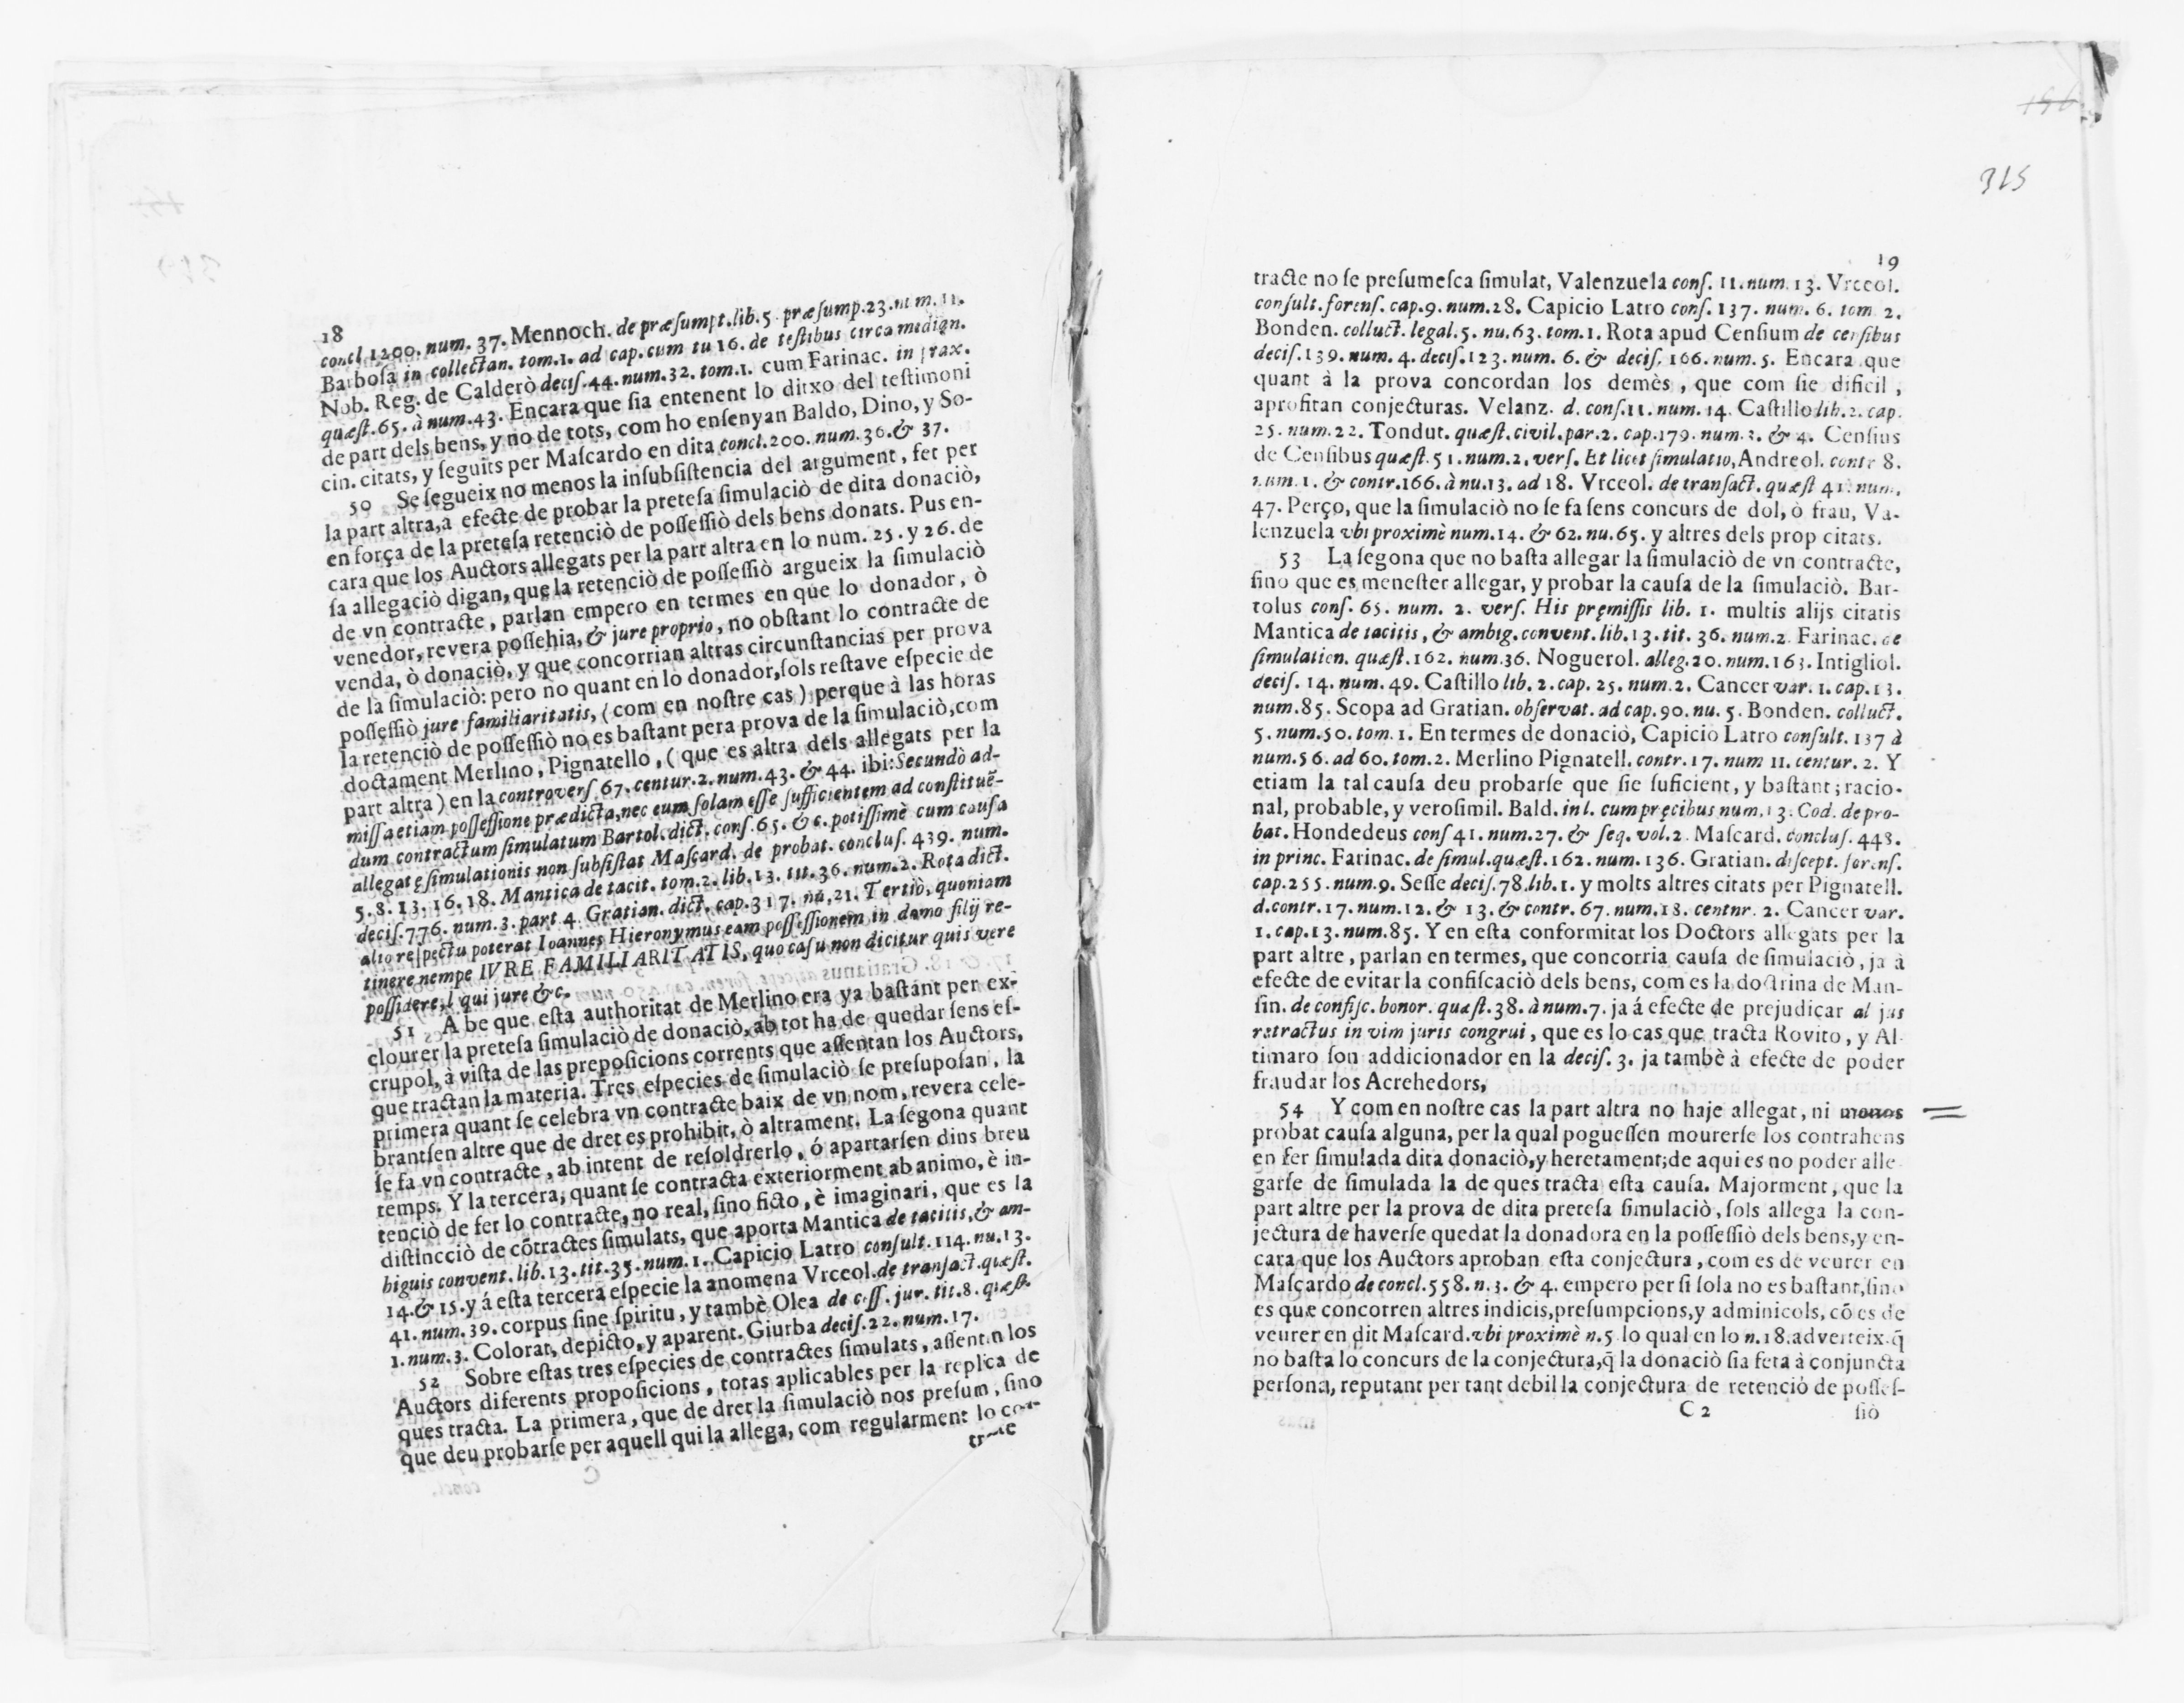 18
concl 1200. num. 37. Mennoch. de præsumpt. lib. 5. præsump. 23. num. 11.
Barbosa in collectan. tom. 1. ad cap. cum tu 16. de testibus circa
Nob. Reg. de Calderò decis. 44. num. 32. tom. 1. cum Farinac. in prax.
quæst. 65. à num. 43. Encara que sia entenent lo ditxo del testimoni
de part dels bens, y no de tots, com ho ensenyan Baldo, Dino, y So-
cin. citats, y seguits per Mascardo en dita concl. 200. num. 36. & 37.
50 Se segueix no menos la insubsistencia del argument, fet per
la part altra, a efecte de probar la pretesa simulaciò de dita donaciò,
en força de la pretesa retenciò de possessiò dels bens donats. Pus en-
cara que los Auctors allegats per la part altra en lo num. 25. y 26. de
sa allegaciò digan, que la retenciò de possessiò argueix la simulaciò
de vn contracte, parlan empero en termes en que lo donador, ò
venedor, revera possehia, & jure proprio, no obstant lo contracte de
venda, ò donaciò, y que concorrian altras circunstancias per prova
de la simulaciò: pero no quant en lo donador, sols restave especie de
possessiò jure familiaritatis, (com en nostre cas) perque à las horas
la retenciò de possessiò no es bastant pera prova de la simulaciò, com
doctament Merlino, Pignatello, (que es altra dels allegats per la
part altra) en la controvers. 67. centur. 2. num. 43. & 44. ibi: Secundò ad-
missa etiam possessione prædicta, nec eum solam esse sufficientem ad constituẽ-
dum contractum simulatum Bartol. dict. cons. 65. & c. potissimè cum causa
allegatę simulationis non subsistat Mascard. de probat. conclus. 439. num.
5. 8. 13. 16. 18. Mantica de tacit. tom. 2. lib. 13. tit. 36. num. 2. Rota dict.
decis. 776. num. 3. part 4. Gratian. dict. cap. 317. nu. 21. Tertiò, quoniam
alio respectu poterat Ioannes Hieronymus eam possessionem in domo filij re-
tinere nempe IVRE FAMILIARITATIS, quo casu non dicitur quis vere
possidere, l qui jure &c.
51 A be que esta authoritat de Merlino era ya bastant per ex-
clourer la pretesa simulaciò de donaciò, ab tot ha de quedar sens es-
crupol, à vista de las preposicions corrents que assentan los Auctors,
que tractan la materia. Tres especies de simulaciò se presuposan, la
primera quant se celebra vn contracte baix de vn nom, revera cele-
brantsen altre que de dret es prohibit, ò altrament. La segona quant
se fa vn contracte, ab intent de resoldrerlo, ó apartarsen dins breu
temps. Y la tercera, quant se contracta exteriorment ab animo, è in-
tenciò de fer lo contracte, no real, sino ficto, è imaginari, que es la
distincciò de cõtractes simulats, que aporta Mantica de tacitis, & am-
biguis convent. lib. 13. tit. 35. num. 1. Capicio Latro consult. 114. nu. 13.
14. & 15. y á esta tercera especie la anomena Vrceol. de transact. quæst.
41. num. 39. corpus sine spiritu, y tambè Olea de cess. jur. tit. 8. quæst.
1. num. 3. Colorat, depicto, y aparent. Giurba decis. 22. num. 17.
52 Sobre estas tres especies de contractes simulats, assentan los
Auctors diferents proposicions, totas aplicables per la replica de
ques tracta. La primera, que de dret la simulaciò nos presum, sino
que deu probarse per aquell qui la allega, com regularment lo con-
tracte
C
315
19
tracte no se presumesca simulat, Valenzuela cons. 11. num. 13. Vrceol.
consult. forens. cap. 9. num. 28. Capicio Latro cons. 137. num. 6. tom. 2.
Bonden. colluct. legal. 5. nu. 63. tom. 1. Rota apud Censium de censibus
decis. 139. num. 4. decis. 123. num. 6. & decis. 166. num. 5. Encara que
quant à la prova concordan los demès, que com sie dificil,
aprofitan conjecturas. Velanz. d. cons. 11. num. 14. Castillo lib. 2. cap.
25. num. 22. Tondut. quæst. civil. par. 2. cap. 179. num. 3. & 4. Censius
de Censibus quæst. 51. num. 2. vers. Et licet simulatio, Andreol. contr 8.
num. 1. & contr. 166. à nu. 13. ad 18. Vrceol. de transact. quæst 41. num.
47. Perço, que la simulaciò no se fa sens concurs de dol, ò frau, Va-
lenzuela vbi proximè num. 14. & 62. nu. 65. y altres dels prop citats.
53 La segona que no basta allegar la simulaciò de vn contracte,
sino que es menester allegar, y probar la causa de la simulaciò. Bar-
tolus cons. 65. num. 2. vers. His pręmissis lib. 1. multis alijs citatis
Mantica de tacitis, & ambig. convent. lib. 13. tit. 36. num. 2. Farinac. de
simulation. quæst. 162. num. 36. Noguerol. alleg. 20. num. 163. Intigliol.
decis. 14. num. 49. Castillo lib. 2. cap. 25. num. 2. Cancer var. 1. cap. 13.
num. 85. Scopa ad Gratian. observat. ad cap. 90. nu. 5. Bonden. colluct.
5. num. 50. tom. 1. En termes de donaciò, Capicio Latro consult. 137 à
num. 56. ad 60. tom. 2. Merlino Pignatell. contr. 17. num 11. centur. 2. Y
etiam la tal causa deu probarse que sie suficient, y bastant; racio-
nal, probable, y verosimil. Bald. in l. cum pręcibus num. 13. Cod. de pro-
bat. Hondedeus cons 41. num. 27. & seq. vol. 2. Mascard. conclus. 448.
in princ. Farinac. de simul. quæst. 162. num. 136. Gratian. discept. forens.
cap. 255. num. 9. Sesse decis. 78. lib. 1. y molts altres citats per Pignatell.
d. contr. 17. num. 12. & 13. & contr. 67. num. 18. centnr. 2. Cancer var.
1. cap. 13. num. 85. Y en esta conformitat los Doctors allegats per la
part altre, parlan en termes, que concorria causa de simulaciò, ja à
efecte de evitar la confiscaciò dels bens, com es la doctrina de Man-
sin. de confisc. bonor. quæst. 38. à num. 7. ja á efecte de prejudicar al jus
retractus in vim juris congrui, que es lo cas que tracta Rovito, y Al-
timaro son addicionador en la decis. 3. ja tambè à efecte de poder
fraudar los Acrehedors,
54 Y com en nostre cas la part altra no haje allegat, ni menos
probat causa alguna, per la qual poguessen mourerse los contrahens
en fer simulada dita donaciò, y heretament; de aqui es no poder alle
garse de simulada la de ques tracta esta causa. Majorment, que la
part altre per la prova de dita pretesa simulaciò, sols allega la con-
jectura de haverse quedat la donadora en la possessiò dels bens, y en-
cara que los Auctors aproban esta conjectura, com es de veurer en
Mascardo de concl. 558. n. 3. & 4. empero per si sola no es bastant, sino
es que concorren altres indicis, presumpcions, y adminicols, cõ es de
veurer en dit Mascard. vbi proximè n. 5 lo qual en lo n. 18. adverteix q̃
no basta lo concurs de la conjectura, q̃ la donaciò sia feta à conjuncta
persona, reputant per tant debil la conjectura de retenciò de posses-
C 2 siò